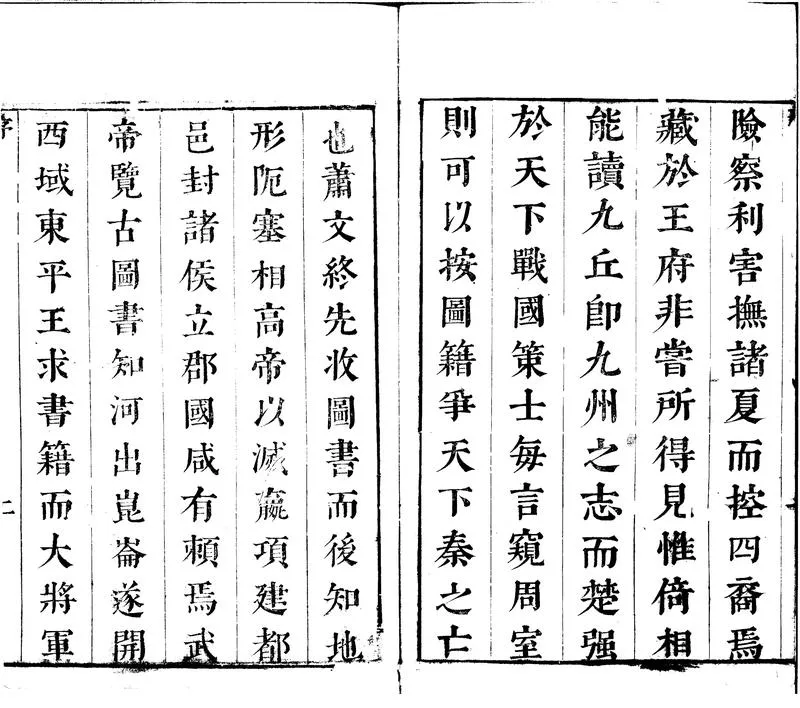 險察利害撫諸夏而控四裔焉
藏於王府非嘗所得見惟倚相
能讀九丘卽九州之志而楚强
於天下戰國策士每言窺周室
則可以按圖籍爭天下秦之亡
也蕭文終先收圖書而後知地
形阨塞相高帝以滅嬴項建都
邑封諸侯立郡國咸有賴焉武
帝覽古圖書知河出崑崙遂開
西域東平王求書籍而大將軍
序
二